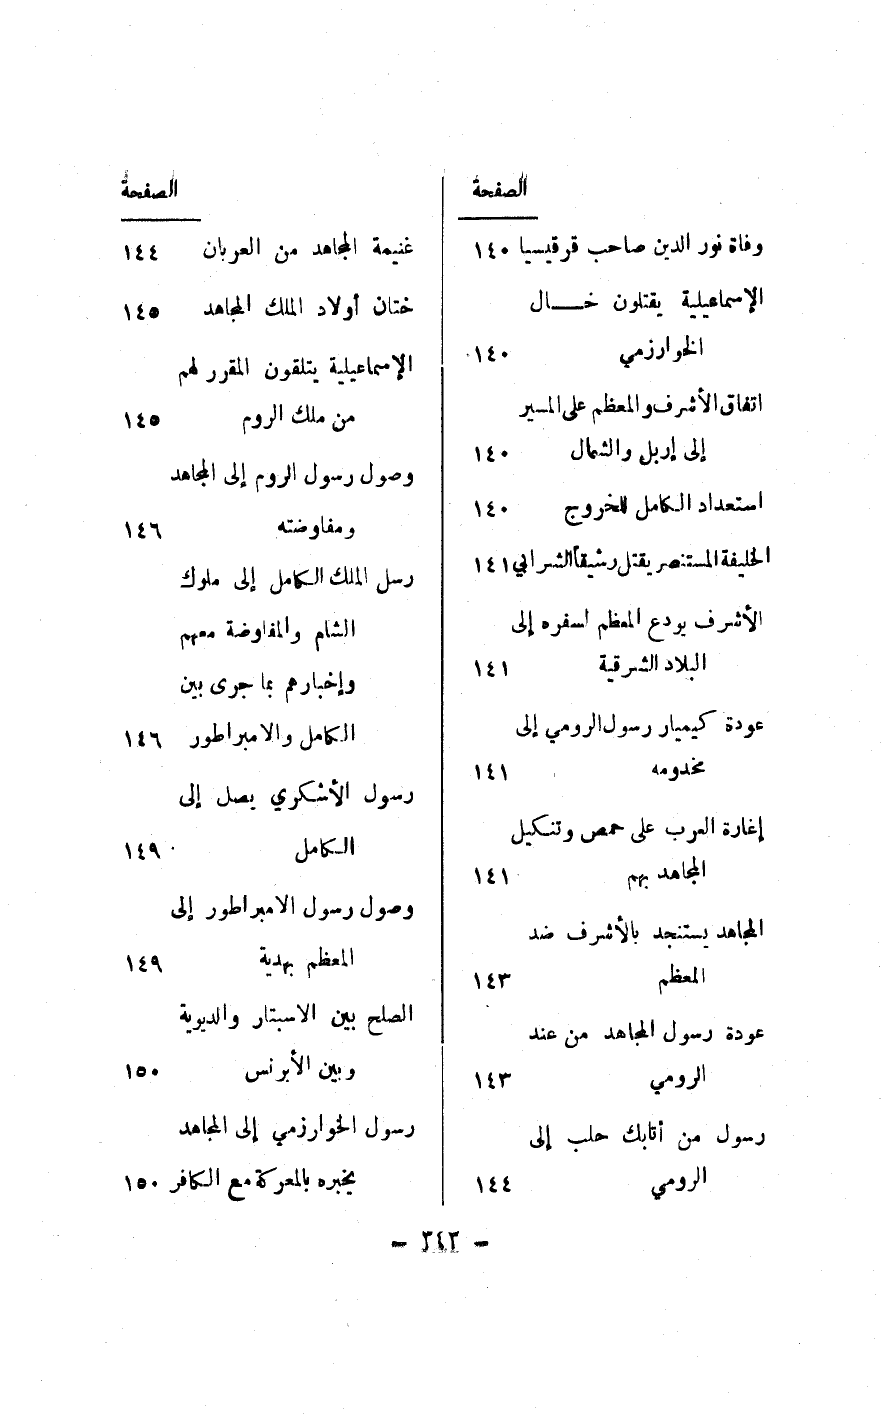 الصفحة
وفاة نور الدين صاحب قرقيسيا ١٤٠
الإسماعيلية يقتلون خــــال
الخوارزمي ١٤٠
اتفاق الأشرف والمعظم على المسير
إلى إربل والشمال ١٤٠
استعداد الكامل للخروج ١٤٠
الخليفة المستنصر يقتل رشيقاً الشرابي ١٤١
الأشرف يودع المعظم لسفره إلى
البلاد الشرقية ١٤١
عودة كيميار رسول الرومي إلى
مخدومه ١٤١
إغارة العرب على حمص وتنكيل
المجاهد بهم ١٤١
المجاهد يستنجد بالأشرف ضد
المعظم ١٤٣
عودة رسول المجاهد من عند
الرومي ١٤٣
رسول من أتابك حلب إلى
الرومي ١٤٤
الصفحة
غنيمة المجاهد من العربان ١٤٤
ختان أولاد الملك المجاهد ١٤٥
الإسماعيلية يتلقون المقرر لهم
من ملك الروم ١٤٥
وصول رسول الروم إلى المجاهد
ومفاوضته ١٤٦
رسل الملك الكامل إلى ملوك
الشام والمفاوضة معهم
وإخبارهم بما جرى بين
الكامل والامبراطور ١٤٦
رسول الأشكري يصل إلى
الكامل ١٤٩
وصول رسول الامبراطور إلى
المعظم بهدية ١٤٩
الصلح بين الاسبتار والديوية
وبين الأبرنس ١٥٠
رسول الخوارزمي إلى المجاهد
يخبره بالمعركة مع الكافر ١٥٠
– ٣٤٢ –